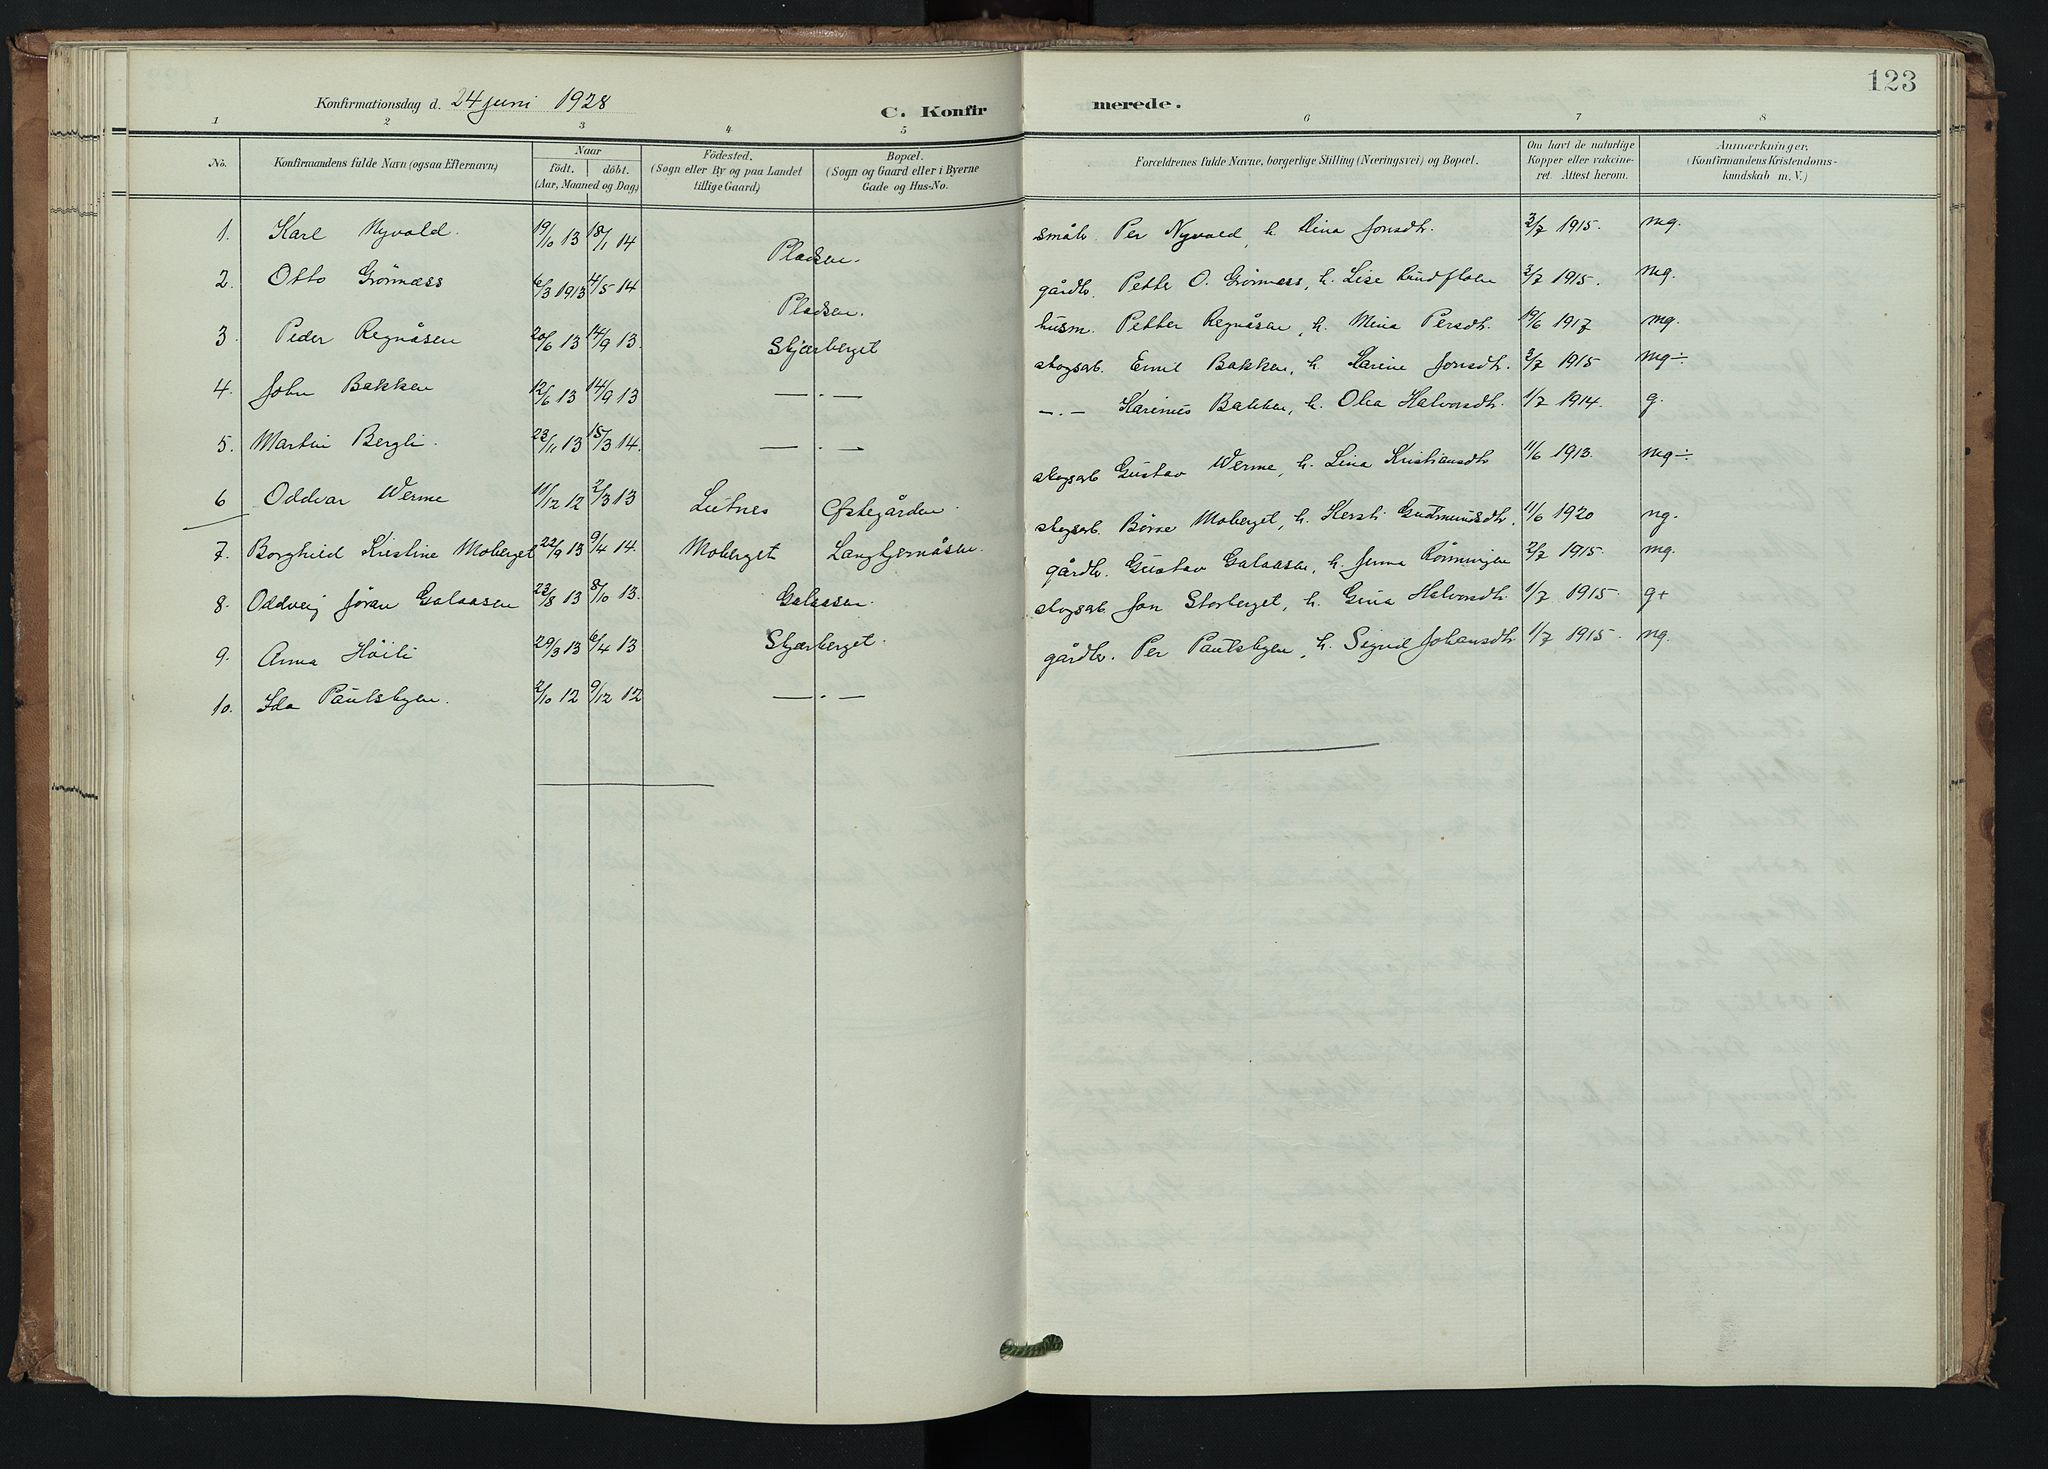 123
Konfirmationsdag d. 24 juni 1928
C. Konfirmerede.
1 2 3 4 5 6 7 8
No. Konfirmandens fulde Navn (ogsaa Efternavn) Naar födt. döbt. (Aar, Maaned og Dag) Födested. (Sogn eller By og paa Landet tillige Gaard) Bopæl. (Sogn og Gaard eller i Byerne Gade og Hus-No. Forældrenes fulde Navne, borgerlige Stilling (Næringsvei) og Bopæl. Om havt de naturlige Kopper eller vakcineret. Attest herom. Anmærkninger. (Konfirmandens Kristendomskundskab m. V.)
1. Karl Nyvold. 19/10 13 18/1 14 Pladsen. småbr. Per Nyvold, h. Jonsdtr. 3/7 1915. mg.
2. Otto Grönnæss 6/3 1913 4/5 14 Pladsen. gårdbr. Petter O. Grönness, h. Lise Rundfloen 3/7 1915. mg.
3 Peder Regnåsen 20/6 13 14/9 13. Skjærberget husm. Petter Regnåsen, h. Mina Persdtr. 19/6 1917 mg.
4. John Bakken 12/6 13 14/9 13 — . — skogsarb. Emil Bakken, h. Karine Jonsdtr. 3/7 1915 mg÷
5. Martin Bergli. 23/11 13 15/3 14. — . — — . — Karinus Bakken, h. Olea Halvorsdtr. 1/7 1914. g.
6 Oddvar Werme 11/12 12 2/3 13 Lutnes Østegården. skogsarb Gustav Werme, h. Lina Kristiansdtr 11/6 1913. mg÷.
7. Borghild Kristine Moberget 22/9 13 9/4 14. Moberget Langtjernåsen. skogsarb. Börre Moberget, h. Kersti Gudmundsdtr. 11/6 1920 ng.
8. Oddveig Jöran Galaasen 23/8 13 8/10 13. Galaasen. gårdbr. Gustav Galaasen, h. Jenna Rönningen 2/7 1915. mg.
9. Anna Höili 29/3 13 6/4 13 Skjærberget. skogsarb. Jon Storberget, h. Gina Halvorsdtr. 1/7 1915. g+
10. Ida Paulsbyen. 2/10 12 9/12 12 — . — gårdbr. Per Paulsbyen, h. Sigrid Johansdtr. 1/7 1915. ng.